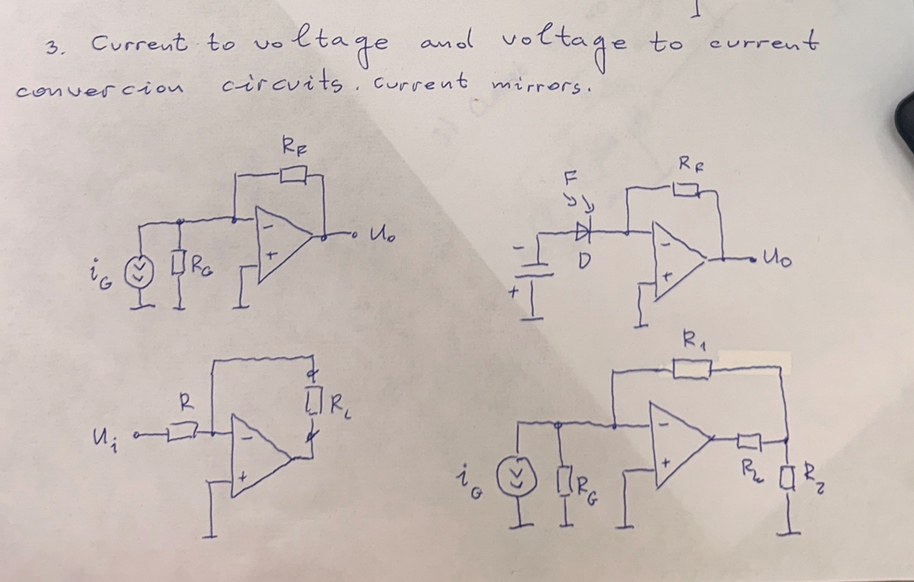 3. Current to voltage and voltage to current
conversion circuits. Current mirrors.
RF
iG
RG
-
+
Uo
F
D
-
+
RF
-
+
Uo
Ui
R
-
+
RL
iG
RG
R1
-
+
RL
R2